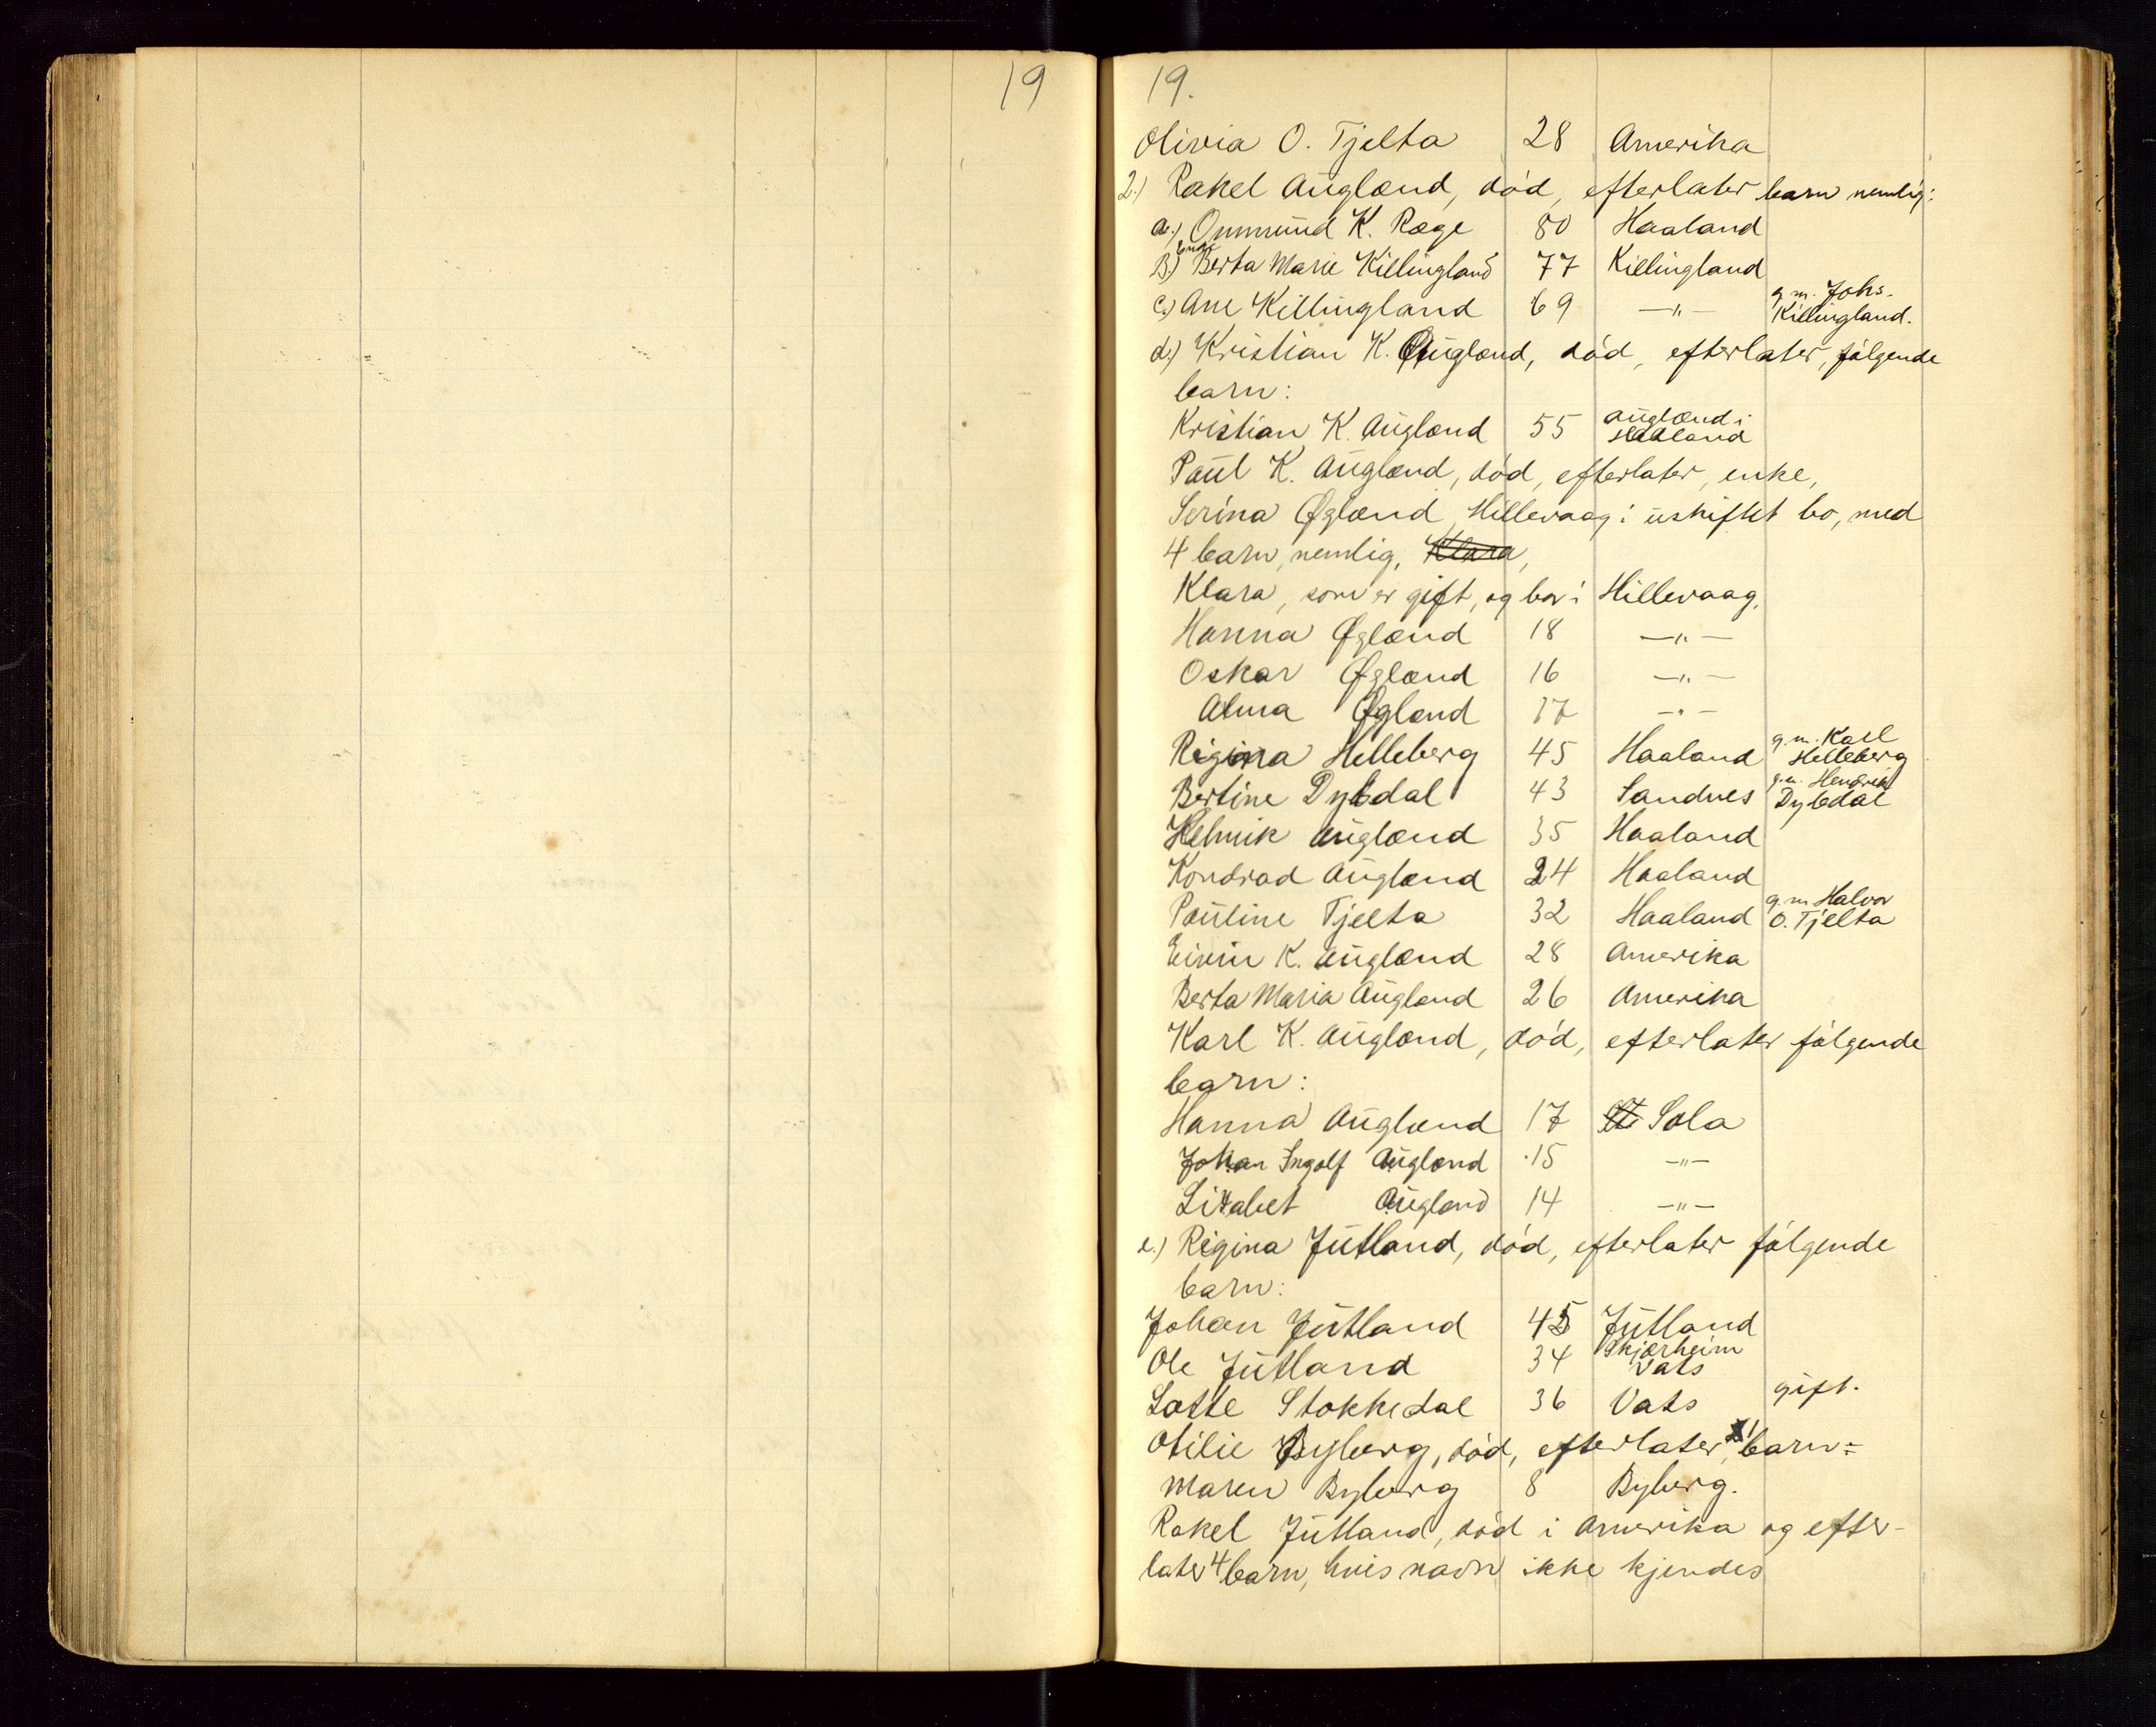 19
19.
Olivia O. Tjelta 28 Amerika
2.) Rakel Auglænd, död, efterlater barn nemlig:
a.) Ommund K. Ræge 80 Haaland
B.) Enke Berta Marie Killingland 77 Killingland
c.) Ane Killingland 69 —"— g. m. Johs. Killingland.
d.) Kristian K. Auglænd, död, efterlater, fölgende
barn:
Kristian K. Auglænd 55 Auglænd i Haaland
Paul K. Auglænd, död, efterlater, enke,
Serina Øglænd, Hillevaag i uskiftet bo, med
4 barn, nemlig, Klara,
Klara, som er gift, og bor i Hillevaag,
Hanna Øglænd 18 —"—
Oskar Øglænd 16 —"—
Alma Øglænd 17 —"—
Regina Helleberg 45 Haaland g. m. Karl Helleberg
Bertine Dybdal 43 Sandnes g.m. Hendrik Dybdal
Helmik Auglænd 35 Haaland
Kondrad Auglænd 24 Haaland
Pauline Tjelta 32 Haaland g. m Halvor O. Tjelta
Eivin K. Auglænd 28 Amerika
Berta Maria Auglænd 26 Amerika
Karl K. Auglænd, död, efterlater fölgende
barn:
Hanna Auglænd 17 Sola
Johan Ingolf Auglænd 15 —"—
Lisabet Auglænd 14 —"—
e.) Regina Jutland, död, efterlater fölgende
barn:
Johan Jutland 45 Jutland
Ole Jutland 34 Skjærheim Vats
Lotte Stokkedal 36 Vats gift.
Otilie Byberg, död, efterlater barn:
Maren Byberg 8 Byberg.
Rakel Jutland, död i Amerika og efter-
later 4 barn, hvis navn ikke kjendes